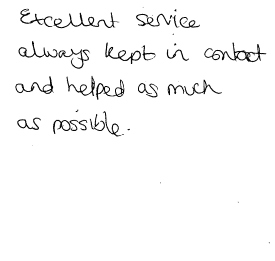 Excellent service
always kept in contact
and helped as much
as possible.